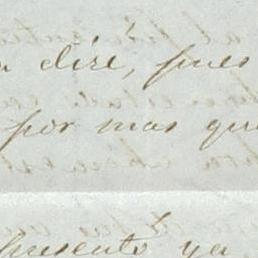 diré, pues
por mas que
presento ya